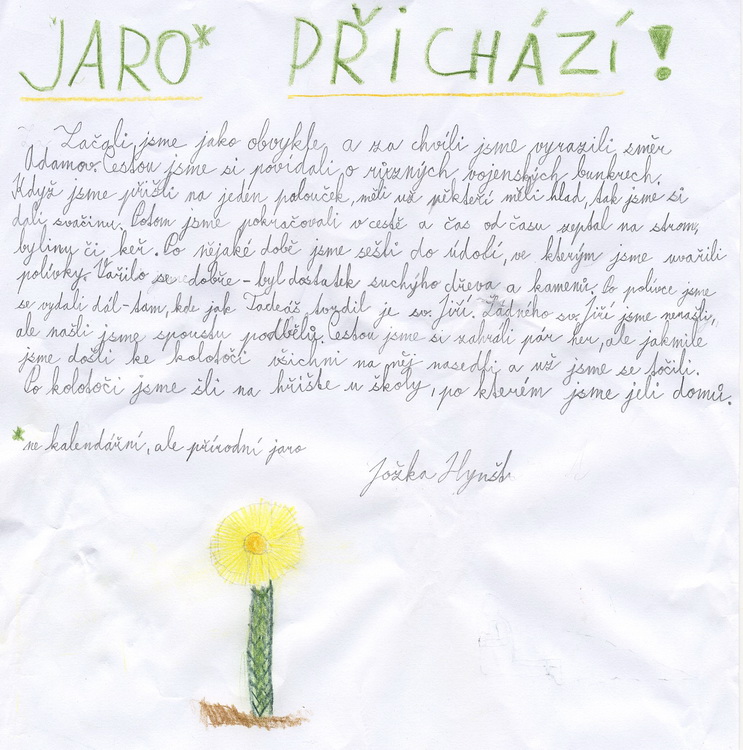 JARO* PŘICHÁZÍ!
Začali jsme jako obvykle, a za chvíli jsme vyrazili směr
Adamov. Cestou jsme si povídali o různých vojenských bunkrech.
Když jsme přišli na jeden palouček, měli už někteří měli hlad, tak jsme si
dali svačinu. Potom jsme pokračovali v cestě a čas od času zeptal na strom,
byliny či keř. Po nějaké době jsme sešli do údolí, ve kterým jsme uvařili
polívky. Vařilo se dobře - byl dostatek suchýho dřeva a kamenů. Po polívce jsme
se vydali dál - tam, kde jak Tadeáš tvrdil je sv. Jiří. Žádného sv. Jiří jsme nenašli,
ale našli jsme spoustu podbělů. Cestou jsme si zahráli pár her, ale jakmile
jsme došli ke kolotoči všichni na něj nasedli a už jsme se točili.
Po kolotoči jsme šli na hřiště u školy, po kterém jsme jeli domů.
*ne kalendářní, ale přírodní jaro
Jožka Hynšt